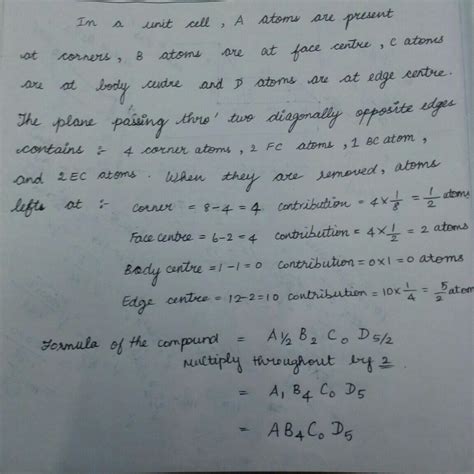 In a unit cell, A atoms are present
at corners, B atoms are at face centre, C atoms
are at body cendre and D atoms are at edge centre.
The plane passing thro' two diagonally opposite edges
contains :- 4 corner atoms, 2 FC atoms, 1 BC atom,
and 2 EC atoms. When they are removed, atoms
lefts at :- corner = 8-4 = 4 contribution = 4×1/8 = 1/2 atoms
Face centre = 6-2 = 4 contribution = 4×1/2 = 2 atoms
Body centre = 1-1 = 0 contribution = 0×1 = 0 atoms
Edge centre = 12-2 = 10 contribution = 10×1/4 = 5/2 atom
Formula of the compound = A1/2 B2 C0 D5/2
Multiply throughout by 2
= A1 B4 C0 D5
= AB4C0D5